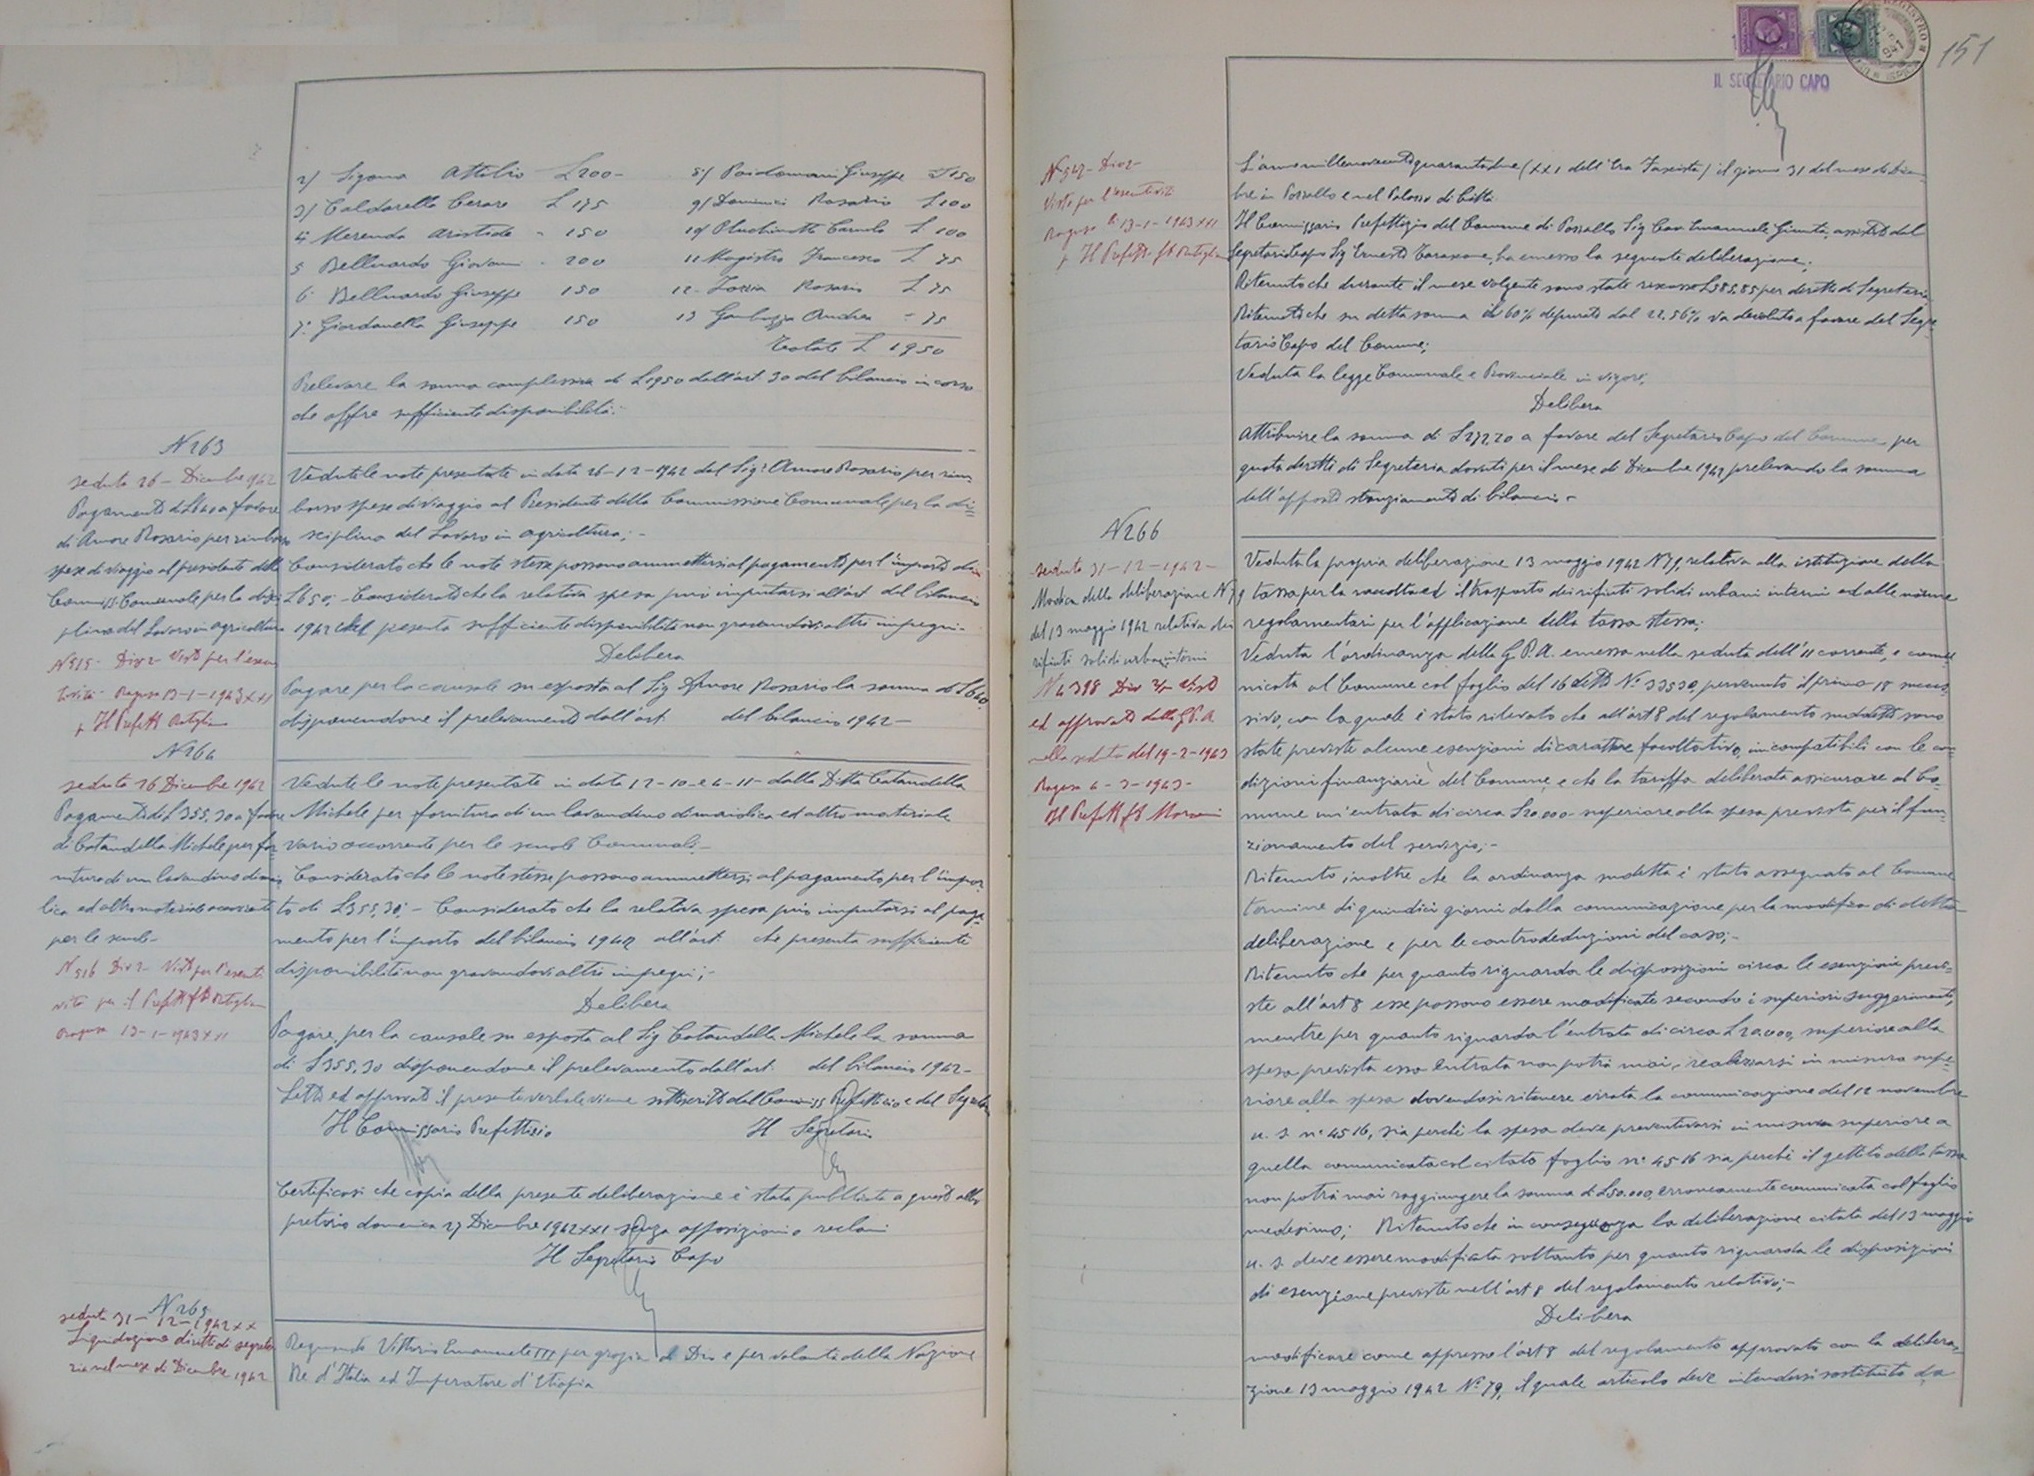 2) Sigona Attilio L 200-
3) Caldarella Cesare L 175
4 Merenda Aristide - 150
5 Belluardo Giovanni - 200
6. Belluardo Giuseppe 150
7. Giordanella Giuseppe 150
8) Poidomani Giuseppe L 150
9) Dominici Rosario L 100
10) Pluchinotta Carmelo L 100
11 Magistro Francesco L 75
12- Rosario L 75
13 Gambuzza Andrea - 75
Totale L 1950
Prelevare la somma complessiva di L 1950 dall'art. 30 del bilancio in corso
che offre sufficiente disponibilità.-
N 263
seduta 26 - Dicembre 1942
Pagamento di L 640 a favore
di Amore Rosario per rimborso
spese di viaggio al presidente della
Commiss. Comunale per la disci
plina del Lavoro in agricoltura
N 515. Div 2- Visto per l'esecu
tività. Ragusa 13-1-1943 XXI
p Il Prefetto
Vedute le note presentate in data 26-12-1942 dal Sig. Amore Rosario per rim
borso spese di viaggio al Presidente della Commissione Comunale per la di=
sciplina del Lavoro in agricoltura;-
Considerato che le note stesse possono ammettersi al pagamento per l'importo di
L 650;- Considerato che la relativa spesa può imputarsi all'art. del bilancio
1942 che presenta sufficiente disponibilità non gravandovi altri impegni.-
Delibera
Pagare per la causale su esposta al Sig. Amore Rosario la somma di L 640
disponendone il prelevamento dall'art. del bilancio 1942-
N 264
seduta 26 Dicembre 1942
Pagamento di L 355,30 a favore
di Cataudella Michele per for
nitura di un lavandino di maio
lica ed altro materiale occorrente
per le scuole-
N 516 Div 2- Visto per l'esecuti
vità per il Prefetto
Ragusa 13-1-1943 XXI
Vedute le note presentate in data 12-10- e 4-11- dalla Ditta Cataudella
Michele per fornitura di un lavandino di maiolica ed altro materiale
vario occorrente per le scuole Comunali.-
Considerato che le note stesse possono ammettersi al pagamento per l'impor
to di L 355,30;- Considerato che la relativa spesa può imputarsi al paga
mento per l'importo del bilancio 1942 all'art. che presenta sufficiente
disponibilità non gravandovi altri impegni;-
Delibera
Pagare, per la causale su esposta al Sig Cataudella Michele la somma
di L 355,30 disponendone il prelevamento dall'art. del bilancio 1942-
Letto ed approvato il presente verbale viene sottoscritto dal Commiss Prefettizio e dal Segretario
Il Commissario Prefettizio Il Segretario
Certificasi che copia della presente deliberazione è stata pubblicata a questo albo
pretorio domenica 27 Dicembre 1942 XXI senza opposizioni o reclami
Il Segretario Capo
N 265
seduta 31-12-1942 XX
Liquidazione diritti di segrete
ria nel mese di Dicembre 1942
Regnando Vittorio Emanuele III per grazia di Dio e per volontà della Nazione
Re d'Italia ed Imperatore d'Etiopia
151
IL SEGRETARIO CAPO
N 547- Div 2-
Visto per l'esecutività
Ragusa li 13-1-1943 XXI
p Il Prefetto
L'anno millenovecentoquarantadue (XXI dell'Era Fascista) il giorno 31 del mese di Dicem-
bre in Pozzallo e nel Palazzo di Città.
Il Commissario Prefettizio del Comune di Pozzallo Sig Cav Emanuele Giunta, assistito dal
Segretario Capo Sig Ernesto Tarascone, ha emesso la seguente deliberazione;
Ritenuto che durante il mese volgente sono state riscosse L 585,85 per diritti di Segreteria
Ritenuto che su detta somma il 60% depurato dal 22.56% va devoluto a favore del Segre
tario Capo del Comune;
Veduta la legge Comunale e Provinciale in vigore,
Delibera
Attribuire la somma di L 272,20 a favore del Segretario Capo del Comune per
quota diritti di Segreteria dovuti per il mese di Dicembre 1942 prelevando la somma
dall'apposito stanziamento di bilancio-
N 266
seduta 31-12-1942-
Modica della deliberazione N 79
del 13 maggio 1942 relativa dei
rifiuti solidi urbani interni
N 4398 Div Visto
ed approvato dalla G.P.A.
nella seduta del 19-2-1943
Ragusa 4-3-1943-
Il Prefetto
Veduta la propria deliberazione 13 maggio 1942 N 79, relativa alla istituzione della
tassa per la raccolta ed il trasporto dei rifiuti solidi urbani interni ed alle norme
regolamentari per l'applicazione della tassa stessa;
Veduta l'ordinanza della G.P.A. emessa nella seduta dell'11 corrente, e comu
nicata al Comune col foglio del 16 detto N° 33530, pervenuto il primo 18 succes
sivo, con la quale è stato rilevato che all'art 8 del regolamento suddetto sono
state previste alcune esenzioni di carattere facoltativo, incompatibili con le con
dizioni finanziarie del Comune, e che la tariffa deliberata assicurare al Co
mune un'entrata di circa L 20.000- superiore alla spesa prevista per il fun
zionamento del servizio;-
Ritenuto inoltre che la ordinanza sudetta è stato assegnato al Comune
termine di quindici giorni dalla comunicazione per la modifica di detta
deliberazione e per le controdeduzioni del caso;-
Ritenuto che per quanto riguarda le disposizioni circa le esenzioni previ=
ste all'art 8 esse possono essere modificate secondo i superiori suggerimenti,
mentre per quanto riguarda l'entrata di circa L 20.000, superiore alla
spesa prevista essa entrata non potrà mai, realizzarsi in misura supe-
riore alla spesa dovendosi ritenere errata la comunicazione del 12 novembre
u. s. n° 4516, sia perchè la spesa deve preventivarsi in misura superiore a
quella comunicata col citato foglio n° 4516 sia perchè il gettito della tassa
non potrà mai raggiungere la somma di L 50.000, erroneamente comunicata col foglio
medesimo; Ritenuto che in conseguenza la deliberazione citata del 13 maggio
u. s. deve essere modificata soltanto per quanto riguarda le disposizioni
di esenzione previste nell'art 8 del regolamento relativo;-
Delibera
modificare come appresso l'art 8 del regolamento approvato con la delibera-
zione 13 maggio 1942 N° 79, il quale articolo deve intendersi sostituito da